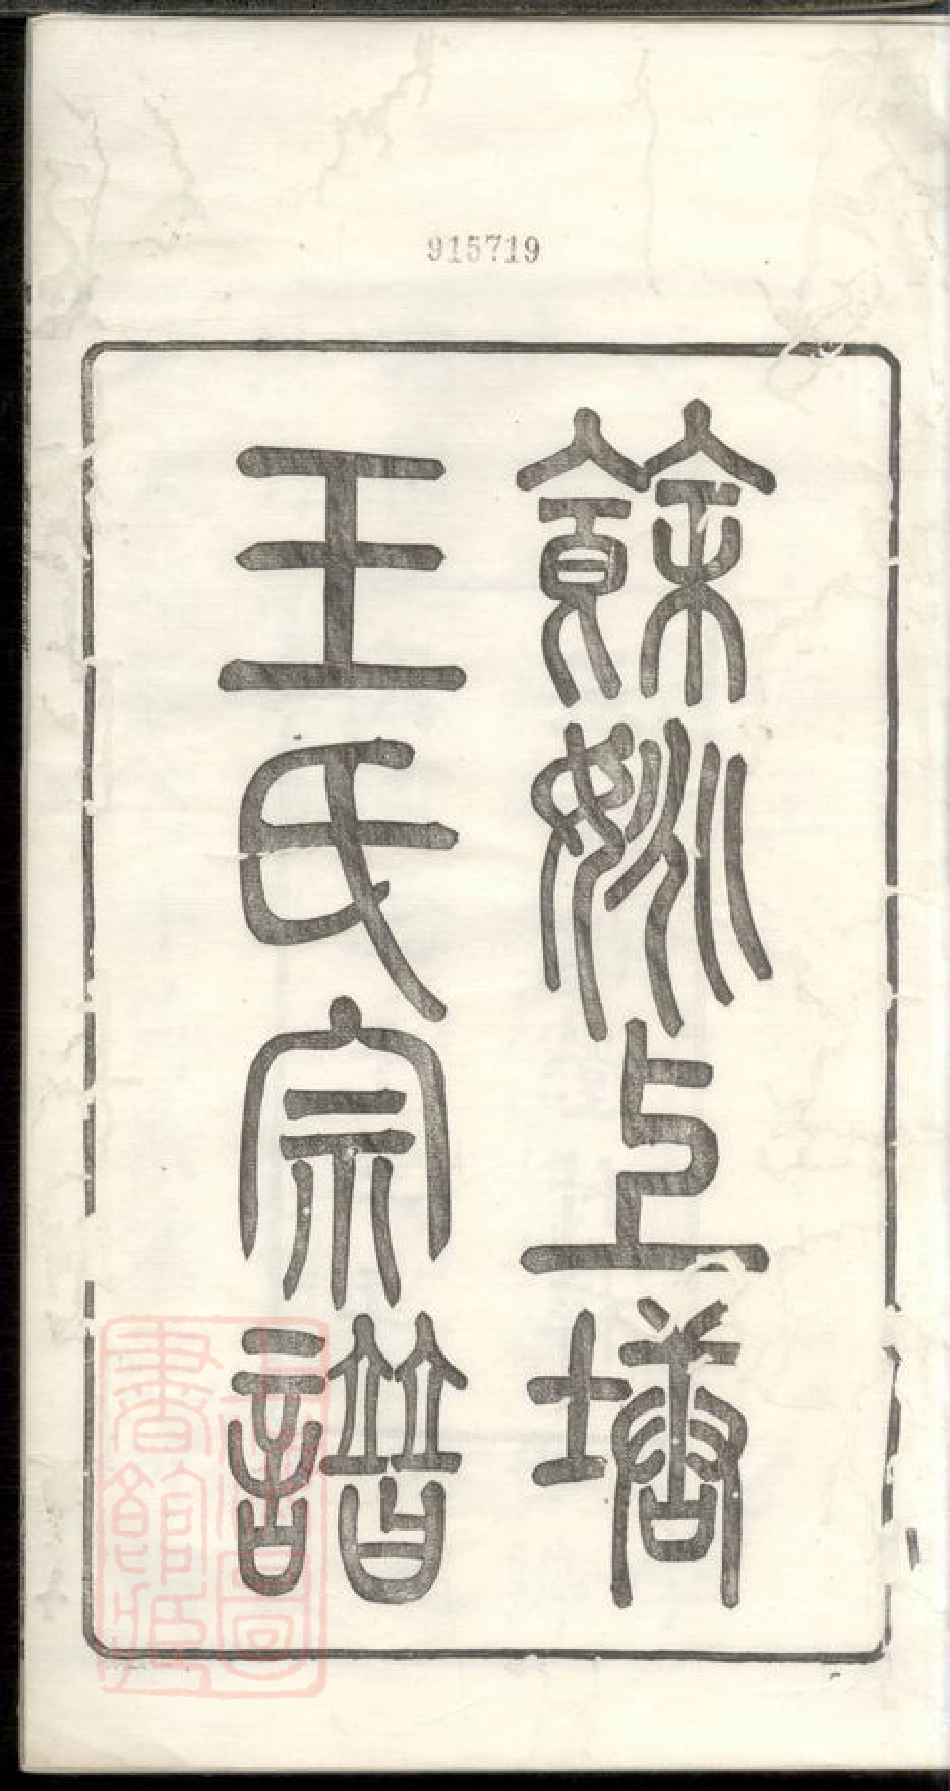 915719
餘姚上塘
王氏宗譜
上海圖
書館藏